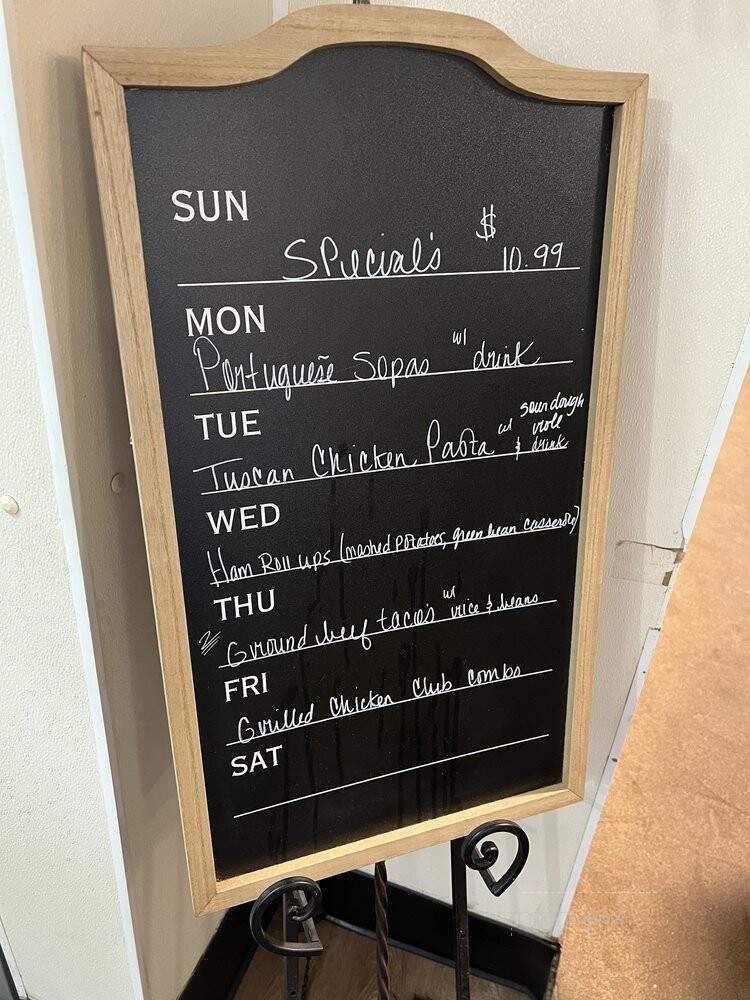 SUN
Special's $ 10.99
MON
Portuguese Sopas w/ drink
TUE
Tuscan Chicken Pasta w/ sourdough
roll
& drink
WED
Ham Roll ups (mashed potatoes, green bean casserole)
THU
2 Ground beef tacos w/ rice & beans
FRI
Grilled Chicken Club combo
SAT